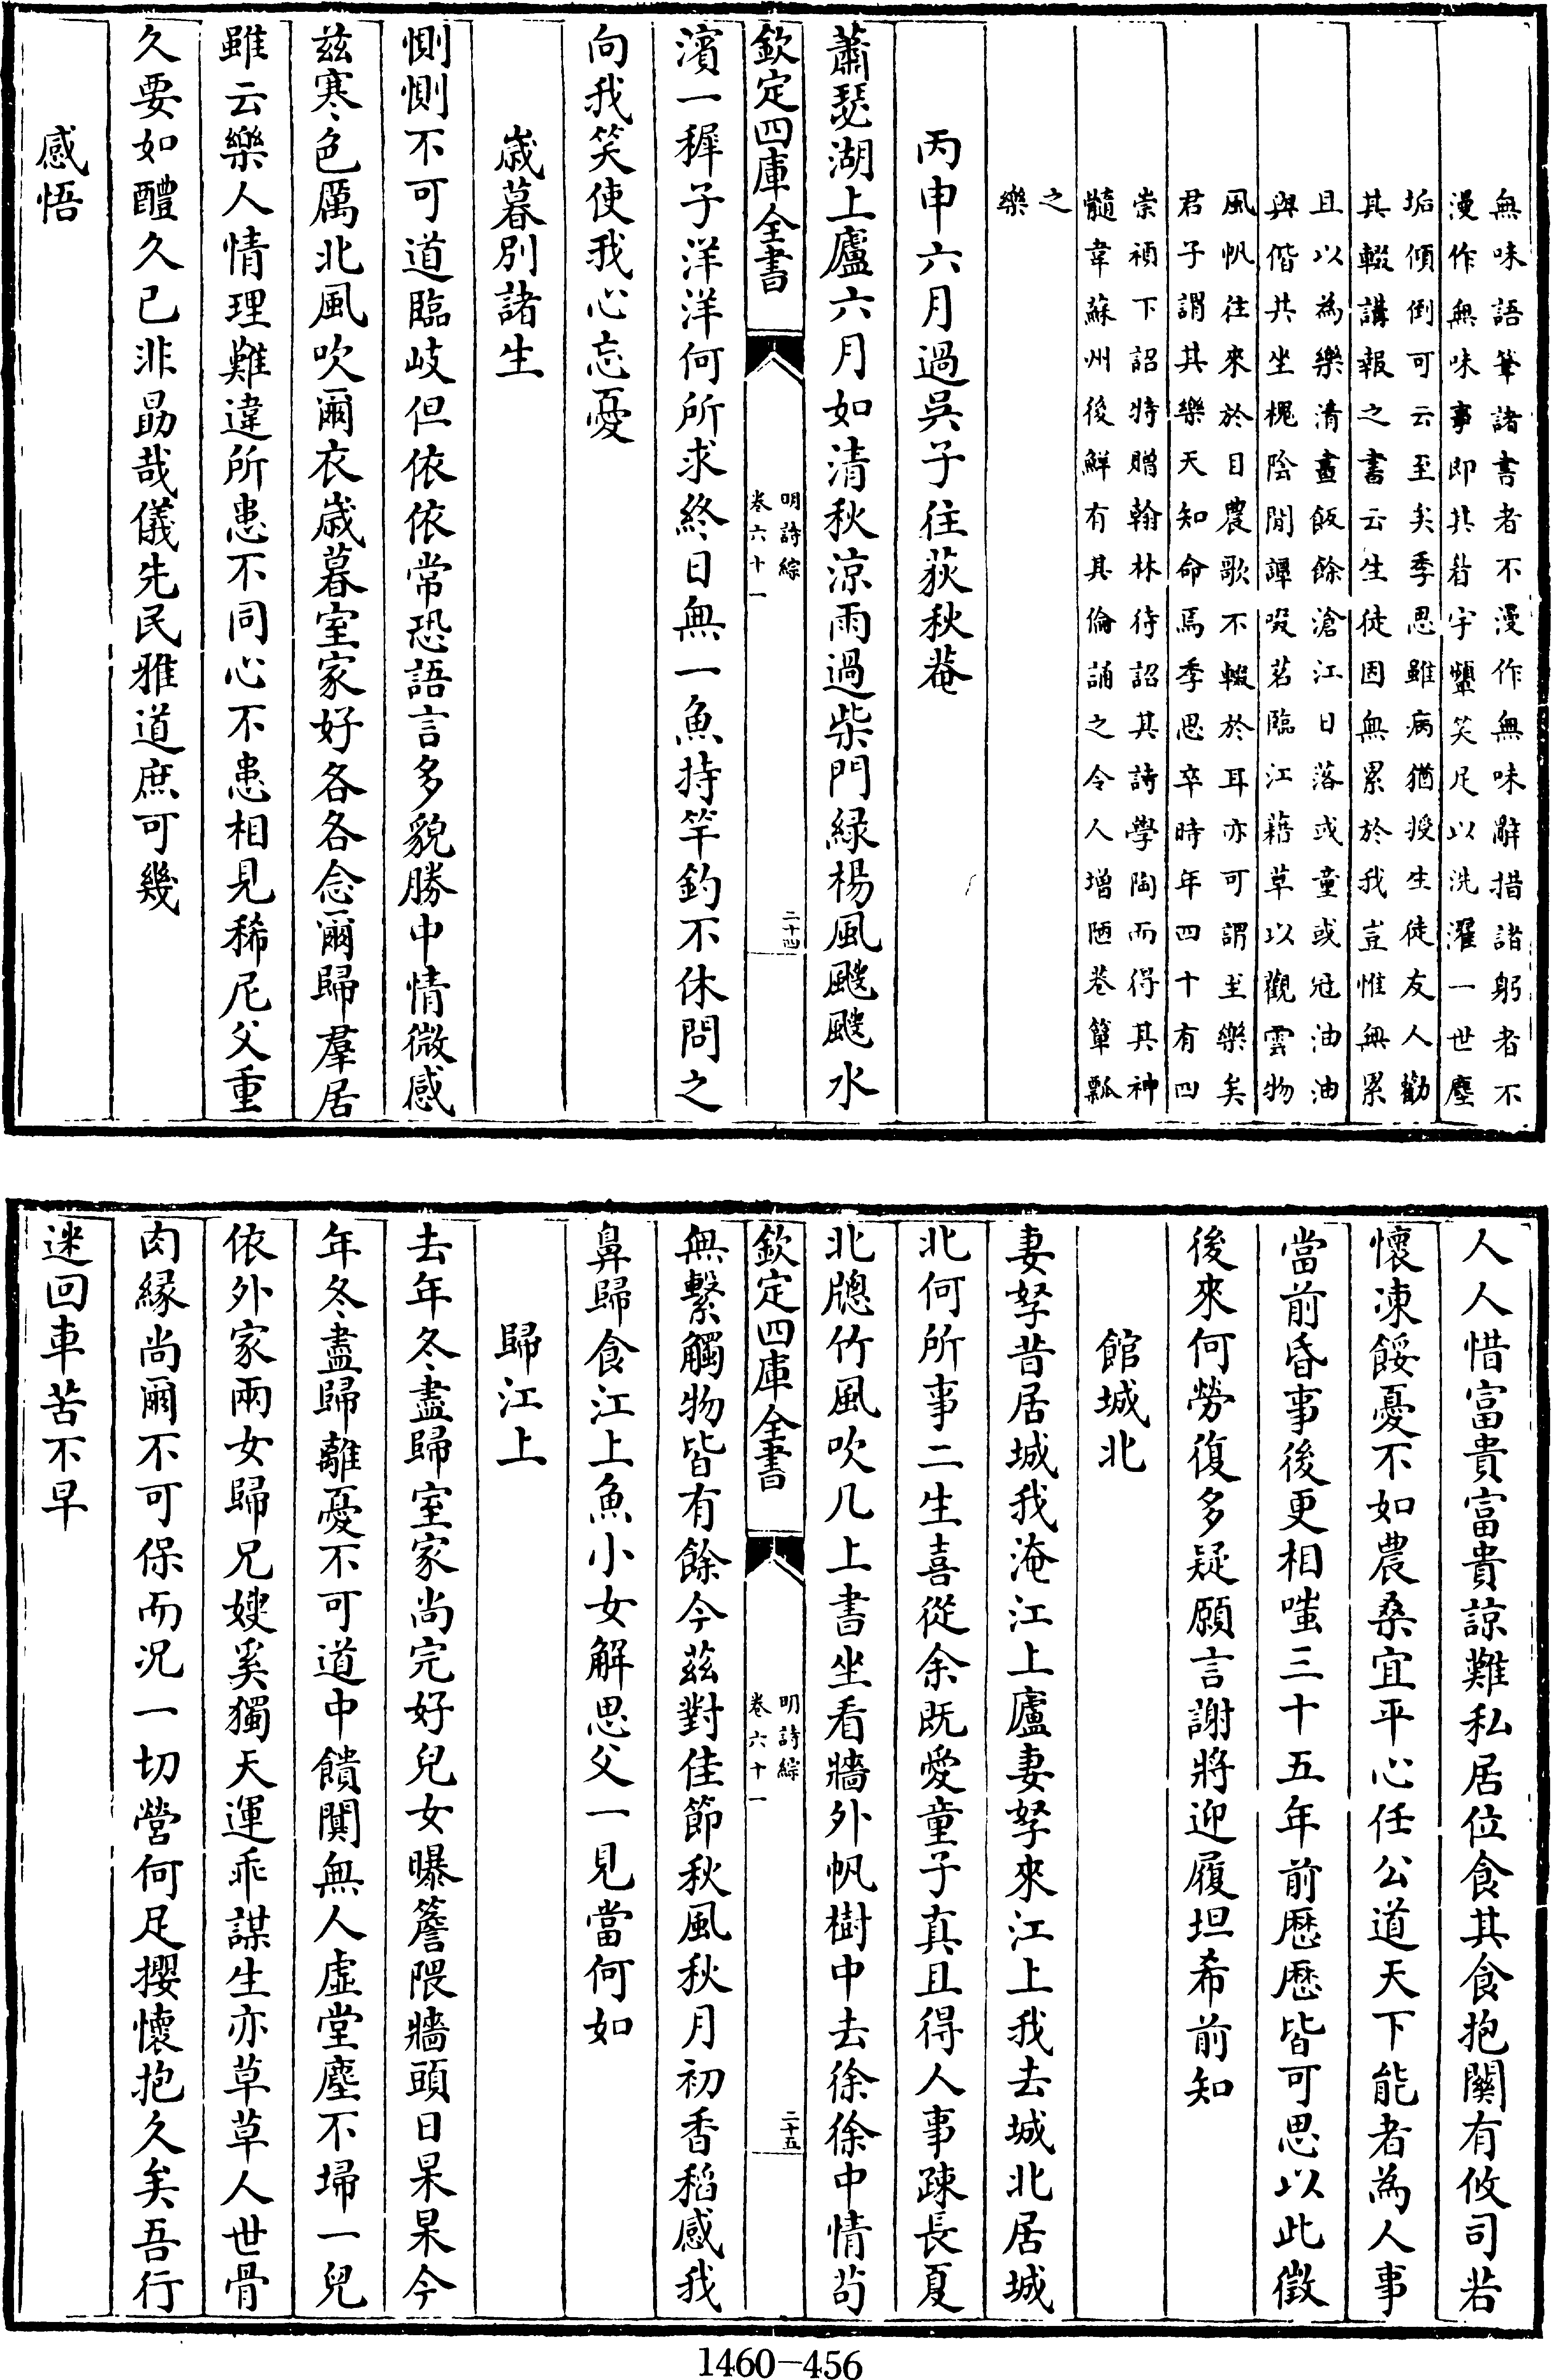 無味語筆諸書者不漫作無味辭措諸躬者不
漫作無味事即其着宇顰笑足以洗濯一世塵
垢傾倒可云至矣季思雖病猶授生徒友人勸
其輟講報之書云生徒因無累於我豈惟無累
且以為樂清晝飯餘滄江日落或童或冠油油
與偕共坐槐陰閒譚啜茗臨江藉草以觀雲物
風帆往來於目農歌不輟於耳亦可謂至樂矣
君子謂其樂天知命焉季思卒時年四十有四
崇禎下詔特贈翰林待詔其詩學陶而得其神
髓韋蘇州後鮮有其倫誦之令人增陋巷簞瓢
之
樂
丙申六月過吳子往荻秋菴
蕭瑟湖上廬六月如清秋涼雨過柴門緑楊風颼颼水
欽定四庫全書
明詩綜
卷六十一
二十四
濱一穉子洋洋何所求終日無一魚持竿釣不休問之
向我笑使我心忘憂
歲暮別諸生
惻惻不可道臨岐但依依常恐語言多貌勝中情微感
兹寒色厲北風吹爾衣歲暮室家好各各念爾歸羣居
雖云樂人情理難違所患不同心不患相見稀尼父重
久要如醴久已非勗哉儀先民雅道庶可幾
感悟
人人惜富貴富貴諒難私居位食其食抱關有攸司若
懷凍餒憂不如農桑宜平心任公道天下能者為人事
當前昏事後更相嗤三十五年前歴歴皆可思以此徵
後來何勞復多疑願言謝將迎履坦希前知
館城北
妻孥昔居城我淹江上廬妻孥來江上我去城北居城
北何所事二生喜從余既愛童子真且得人事疎長夏
北牕竹風吹几上書坐看牆外帆樹中去徐徐中情苟
欽定四庫全書
明詩綜
卷六十一
二十五
無繫觸物皆有餘今兹對佳節秋風秋月初香稻感我
鼻歸食江上魚小女解思父一見當何如
歸江上
去年冬盡歸室家尚完好兒女曝簷隈牆頭日杲杲今
年冬盡歸離憂不可道中饋闃無人虛堂塵不埽一兒
依外家兩女歸兄嫂奚獨天運乖謀生亦草草人世骨
肉緣尚爾不可保而況一切營何足攖懷抱久矣吾行
迷回車苦不早
1460-456